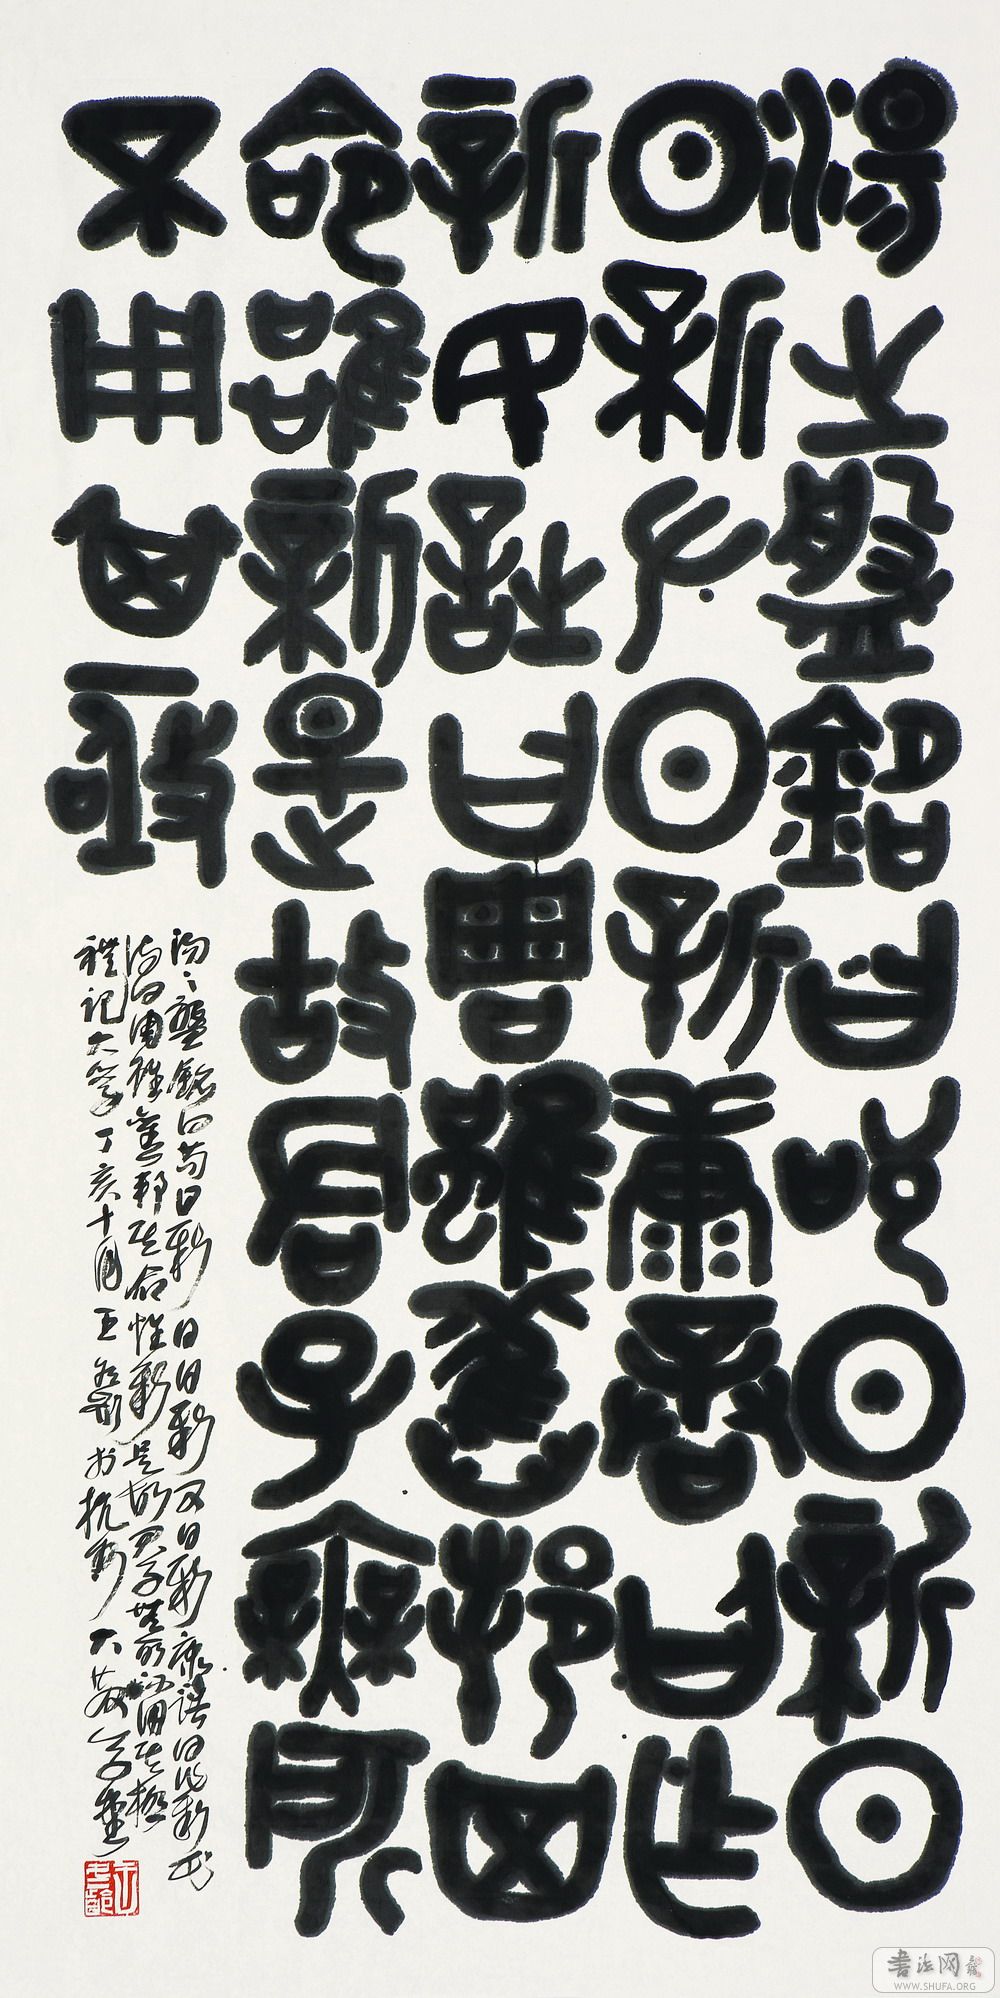 湯之盤銘曰苟日新日
日新又日新康誥曰作
新民詩曰周雖舊邦其
命惟新是故君子無所
不用其極
湯之盤銘曰苟日新日日新又日新康誥曰作新民
詩曰周雖舊邦其命惟新是故君子無所不用其極
禮記大學丁亥十月王冬齡於杭州大散草堂
王冬齡
書法网
WWW.SHUFA.ORG